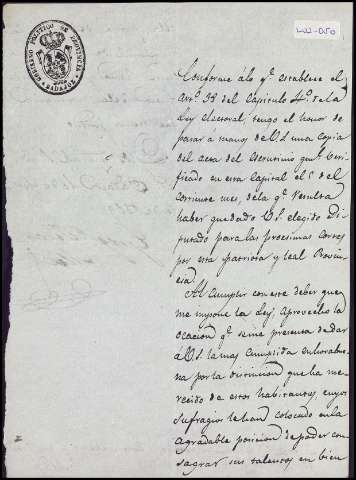 GOBIERNO POLITICO DE PROVINCIA
BADAJOZ
Conforme á lo qe. establece el
Artº. 38 del Capitulo 4º. de la
Ley electoral, tengo el honor de
pasar a manos de V.S. una copia
del acta del escrutinio qe. veri-
ficado en esta Capital el 5 del
corriente mes, dela qe. resulta
haber quedado V.S. elegido Di-
putado para las procsimas cortes
por esta patriota y leal Provin-
cia.
Al cumplir con este deber que
me impone la Ley, aprovecho la
ocacion qe. se me presenta de dar
á V.S. la mas cumplida enhorabue-
na por la distincion que ha me-
recido de estos habitantes, cuyos
sufragios le han colocado en la
agradable posicion de poder con-
sagrar sus talentos en bien